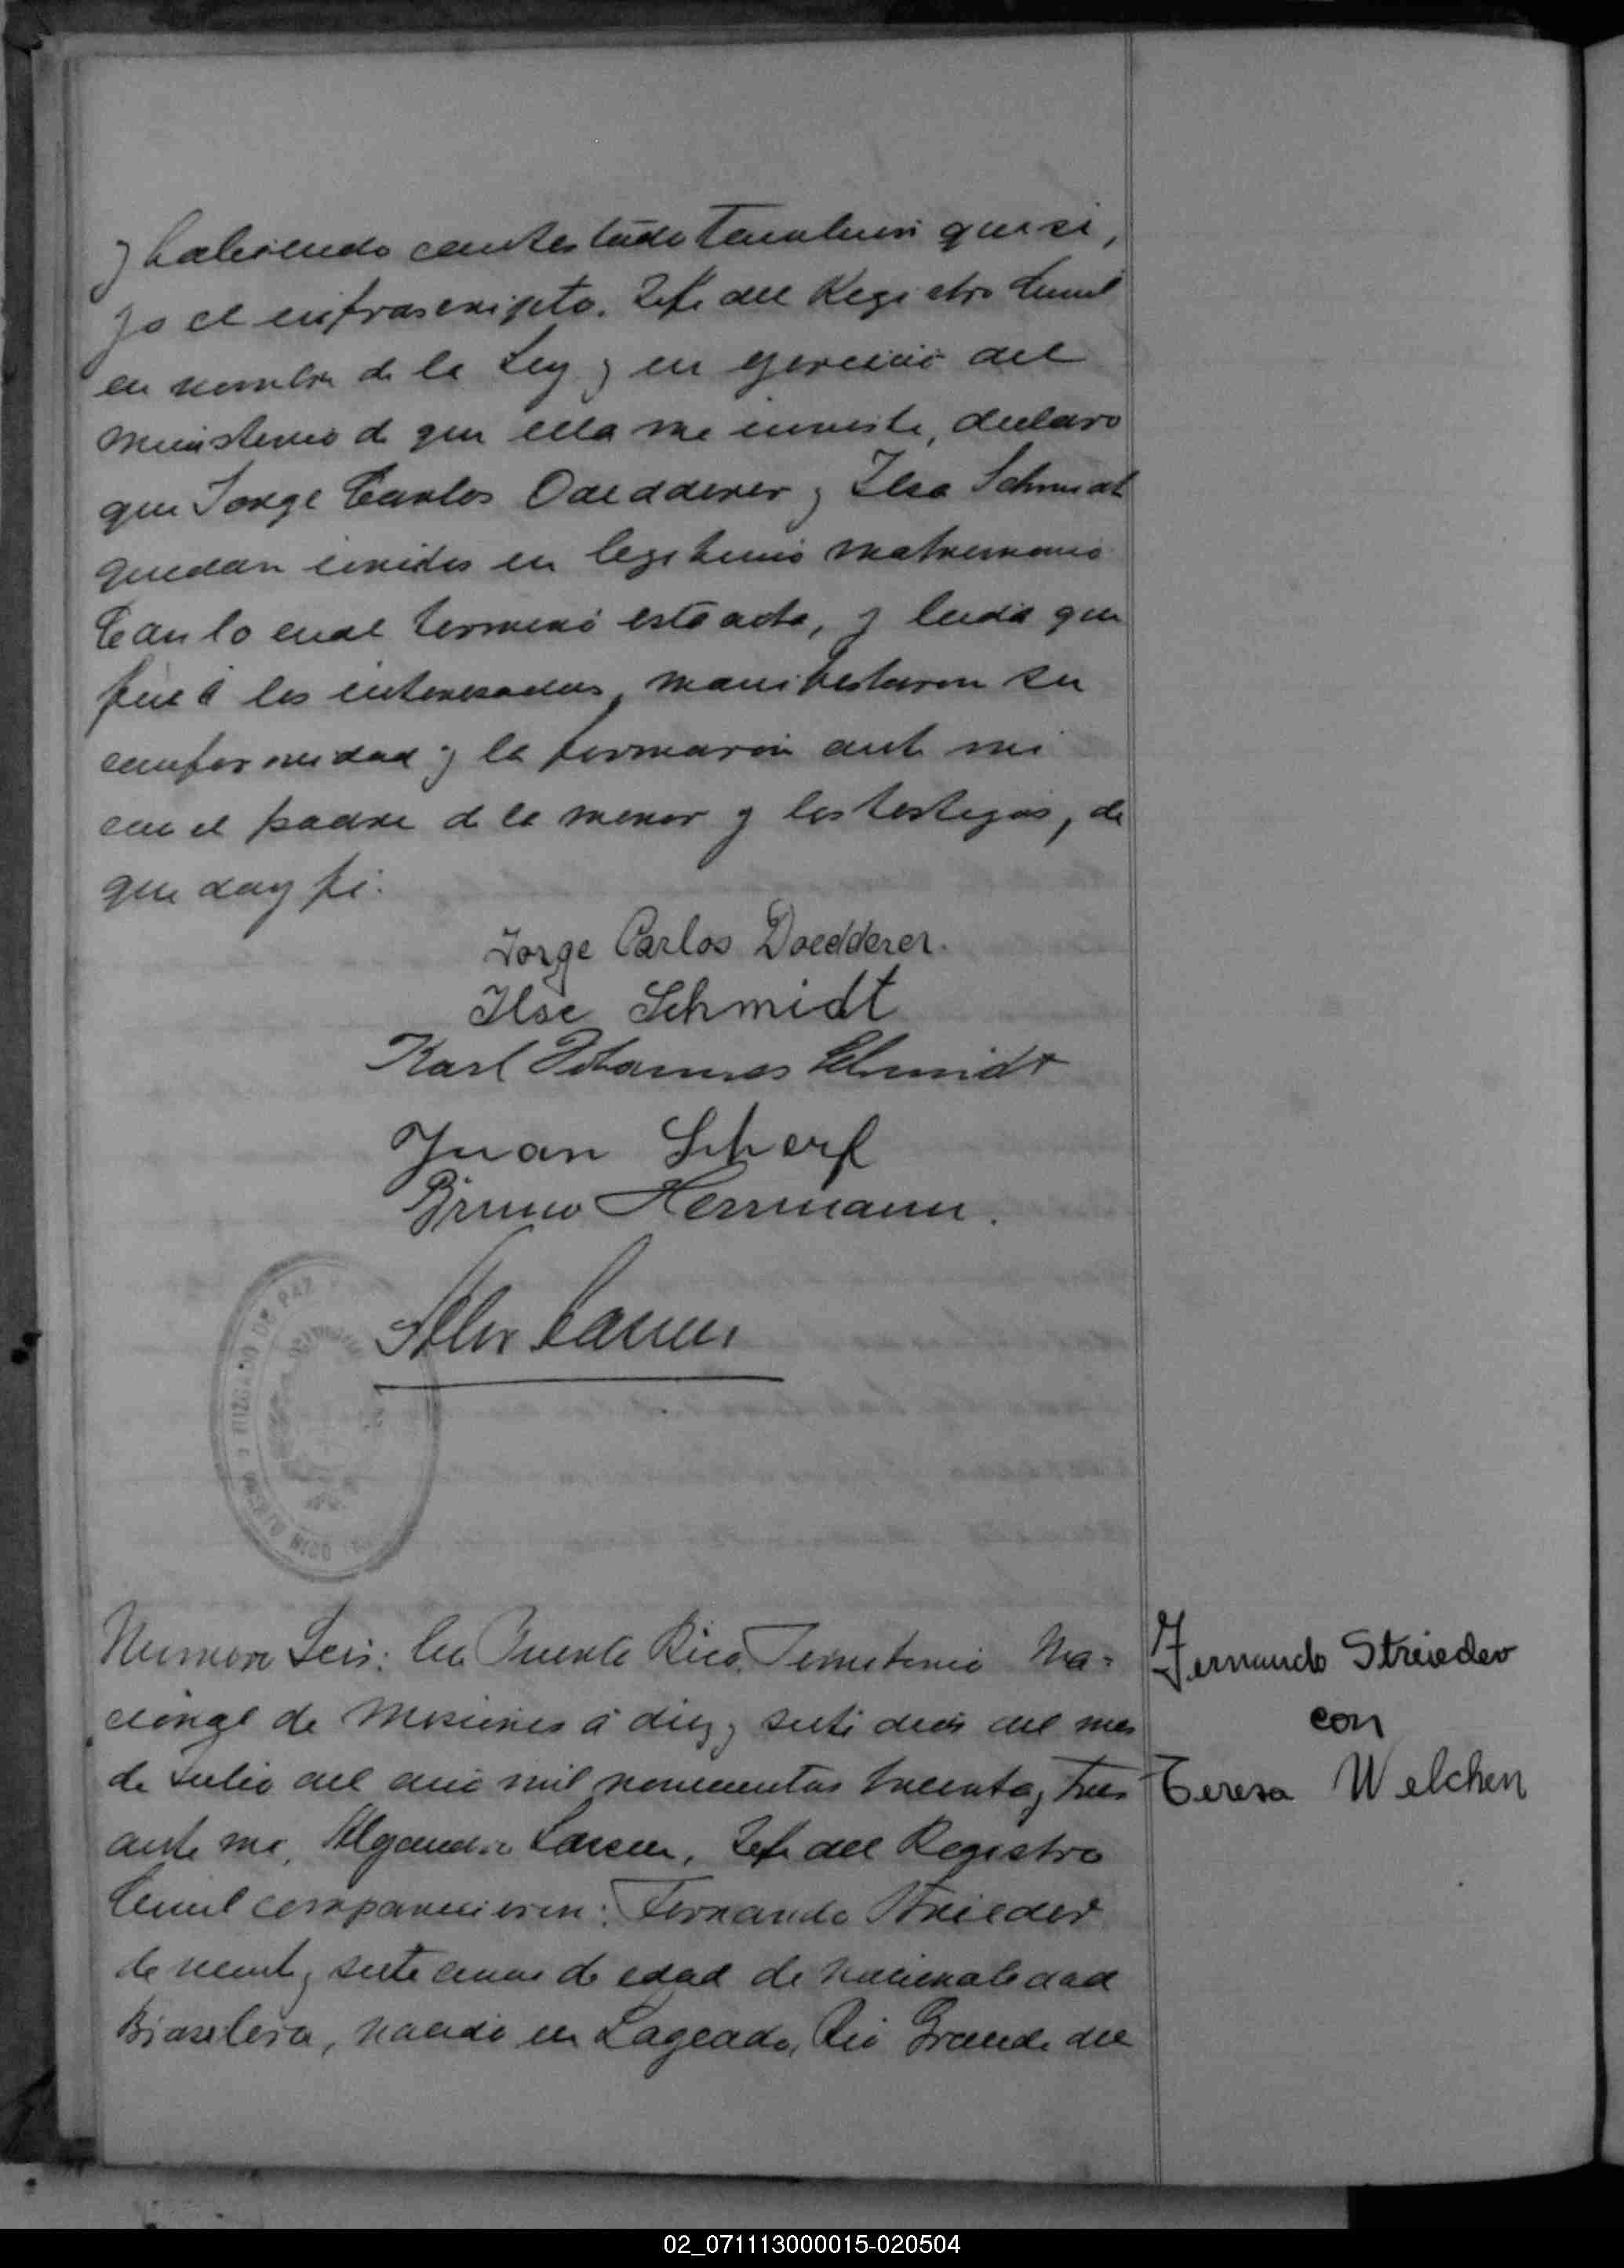 y habiendo contestado tambien que si,
yo el infrascripto. Jefe del Registro Civil
en nombre de la Ley y en ejercicio del
ministerio de que ella me inviste, declaro
que Jorge Carlos Doedderer y Ilse Schmidt
quedan unidos en legitimo matrimonio
Con lo cual terminó este acto, y leida que
fué á los interesados, manifestaron su
conformidad y la firmaron ante mi
con el padre de la menor y los testigos, de
que doy fé.
Jorge Carlos Doedderer.
Ilse Schmidt
Karl Johannes Schmidt
Juan Scherf
Bruno Herrmann.
JUZGADO DE PAZ
Numero Seis: En Puerto Rico, Territorio Na=
cional de Misiones á diez y siete dias del mes
de Julio del año mil novecientos treinta y tres
ante mi, Alejandro Lassen, Jefe del Registro
Civil comparecieron: Fernando Strieder
de veinte y siete años de edad de nacionalidad
Brasilera, nacido en Lageado, Rio Grande del
Fernando Strieder
con
Teresa Welchen
02_071113000015-020504